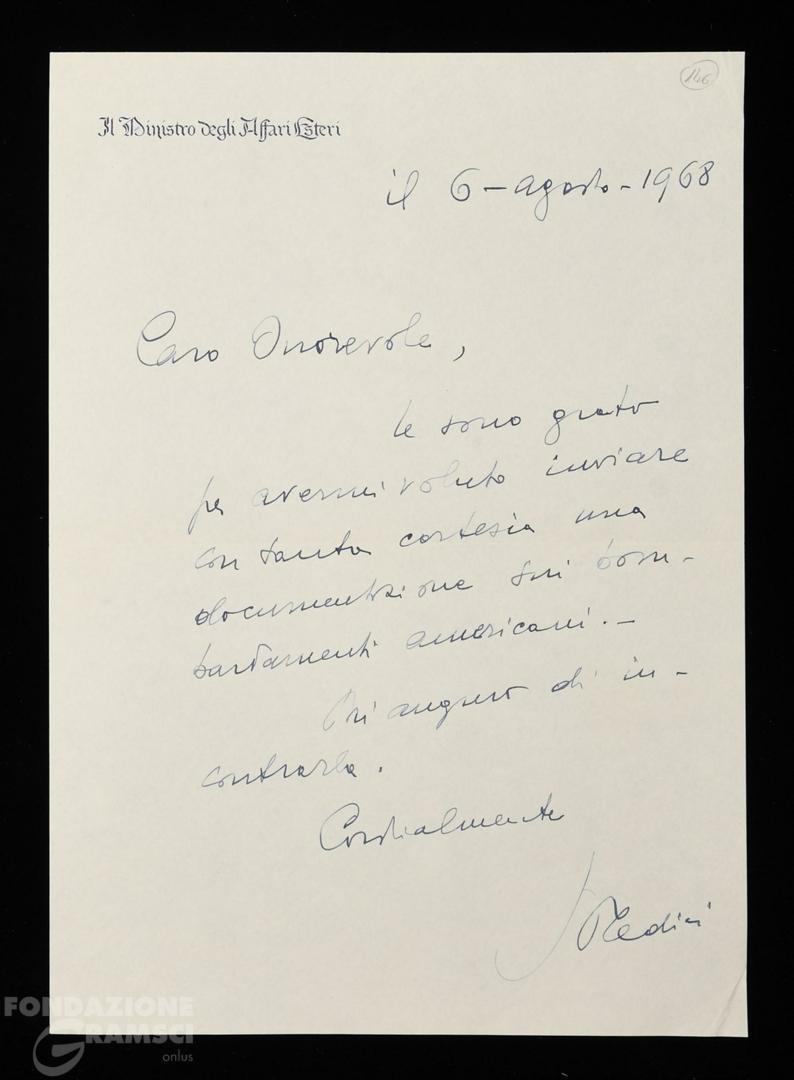 146
Il Ministro degli Affari Esteri
il 6 - agosto - 1968
Caro Onorevole,
le sono grato
per avermi voluto inviare
con tanta cortesia una
documentazione sui bom-
bardamenti americani. -
Mi auguro di in-
contrarla.
Cordialmente
Medici
FONDAZIONE
GRAMSCI
onlus